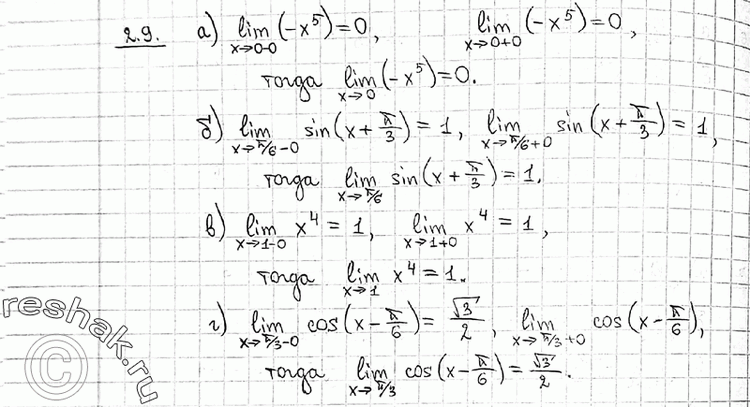 2.9. а) lim x→0-0 (-x⁵) = 0, lim x→0+0 (-x⁵) = 0,
тогда lim x→0 (-x⁵) = 0.
б) lim x→π/6-0 sin(x + π/3) = 1, lim x→π/6+0 sin(x + π/3) = 1,
тогда lim x→π/6 sin(x + π/3) = 1.
в) lim x→1-0 x⁴ = 1, lim x→1+0 x⁴ = 1,
тогда lim x→1 x⁴ = 1.
г) lim x→π/3-0 cos(x - π/6) = √3/2, lim x→π/3+0 cos(x - π/6),
тогда lim x→π/3 cos(x - π/6) = √3/2.
reshak.ru
©